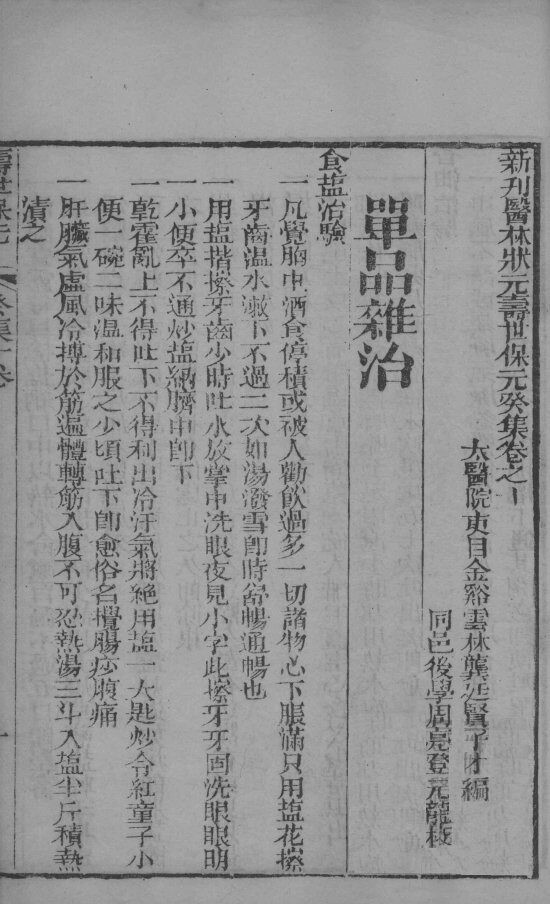 新刊醫林狀元壽世保元癸集卷之十
太醫院吏目金谿雲林龔廷賢子才編
同邑後學周亮登元龍校
單品雜治
食塩治驗
一凡覺胸中酒食停積或被人勸飲過多一切諸物心下脹滿只用塩花擦
牙齒温水漱下不過二次如湯潑雪卽時舒暢通暢也
一用塩揩擦牙齒少時吐水放掌中洗眼夜見小字此擦牙牙固洗眼眼明
一小便卒不通炒塩納臍中卽下
一乾霍亂上不得吐下不得利出冷汗氣將絶用塩一大匙炒令紅童子小
便一碗二味温和服之少頃吐下卽愈俗名攪腸痧腹痛
一肝臟氣虛風冷搏於筋遍體轉筋入腹不可忍熱湯三斗入塩半斤積熱
漬之
壽世保元
癸集十卷
一